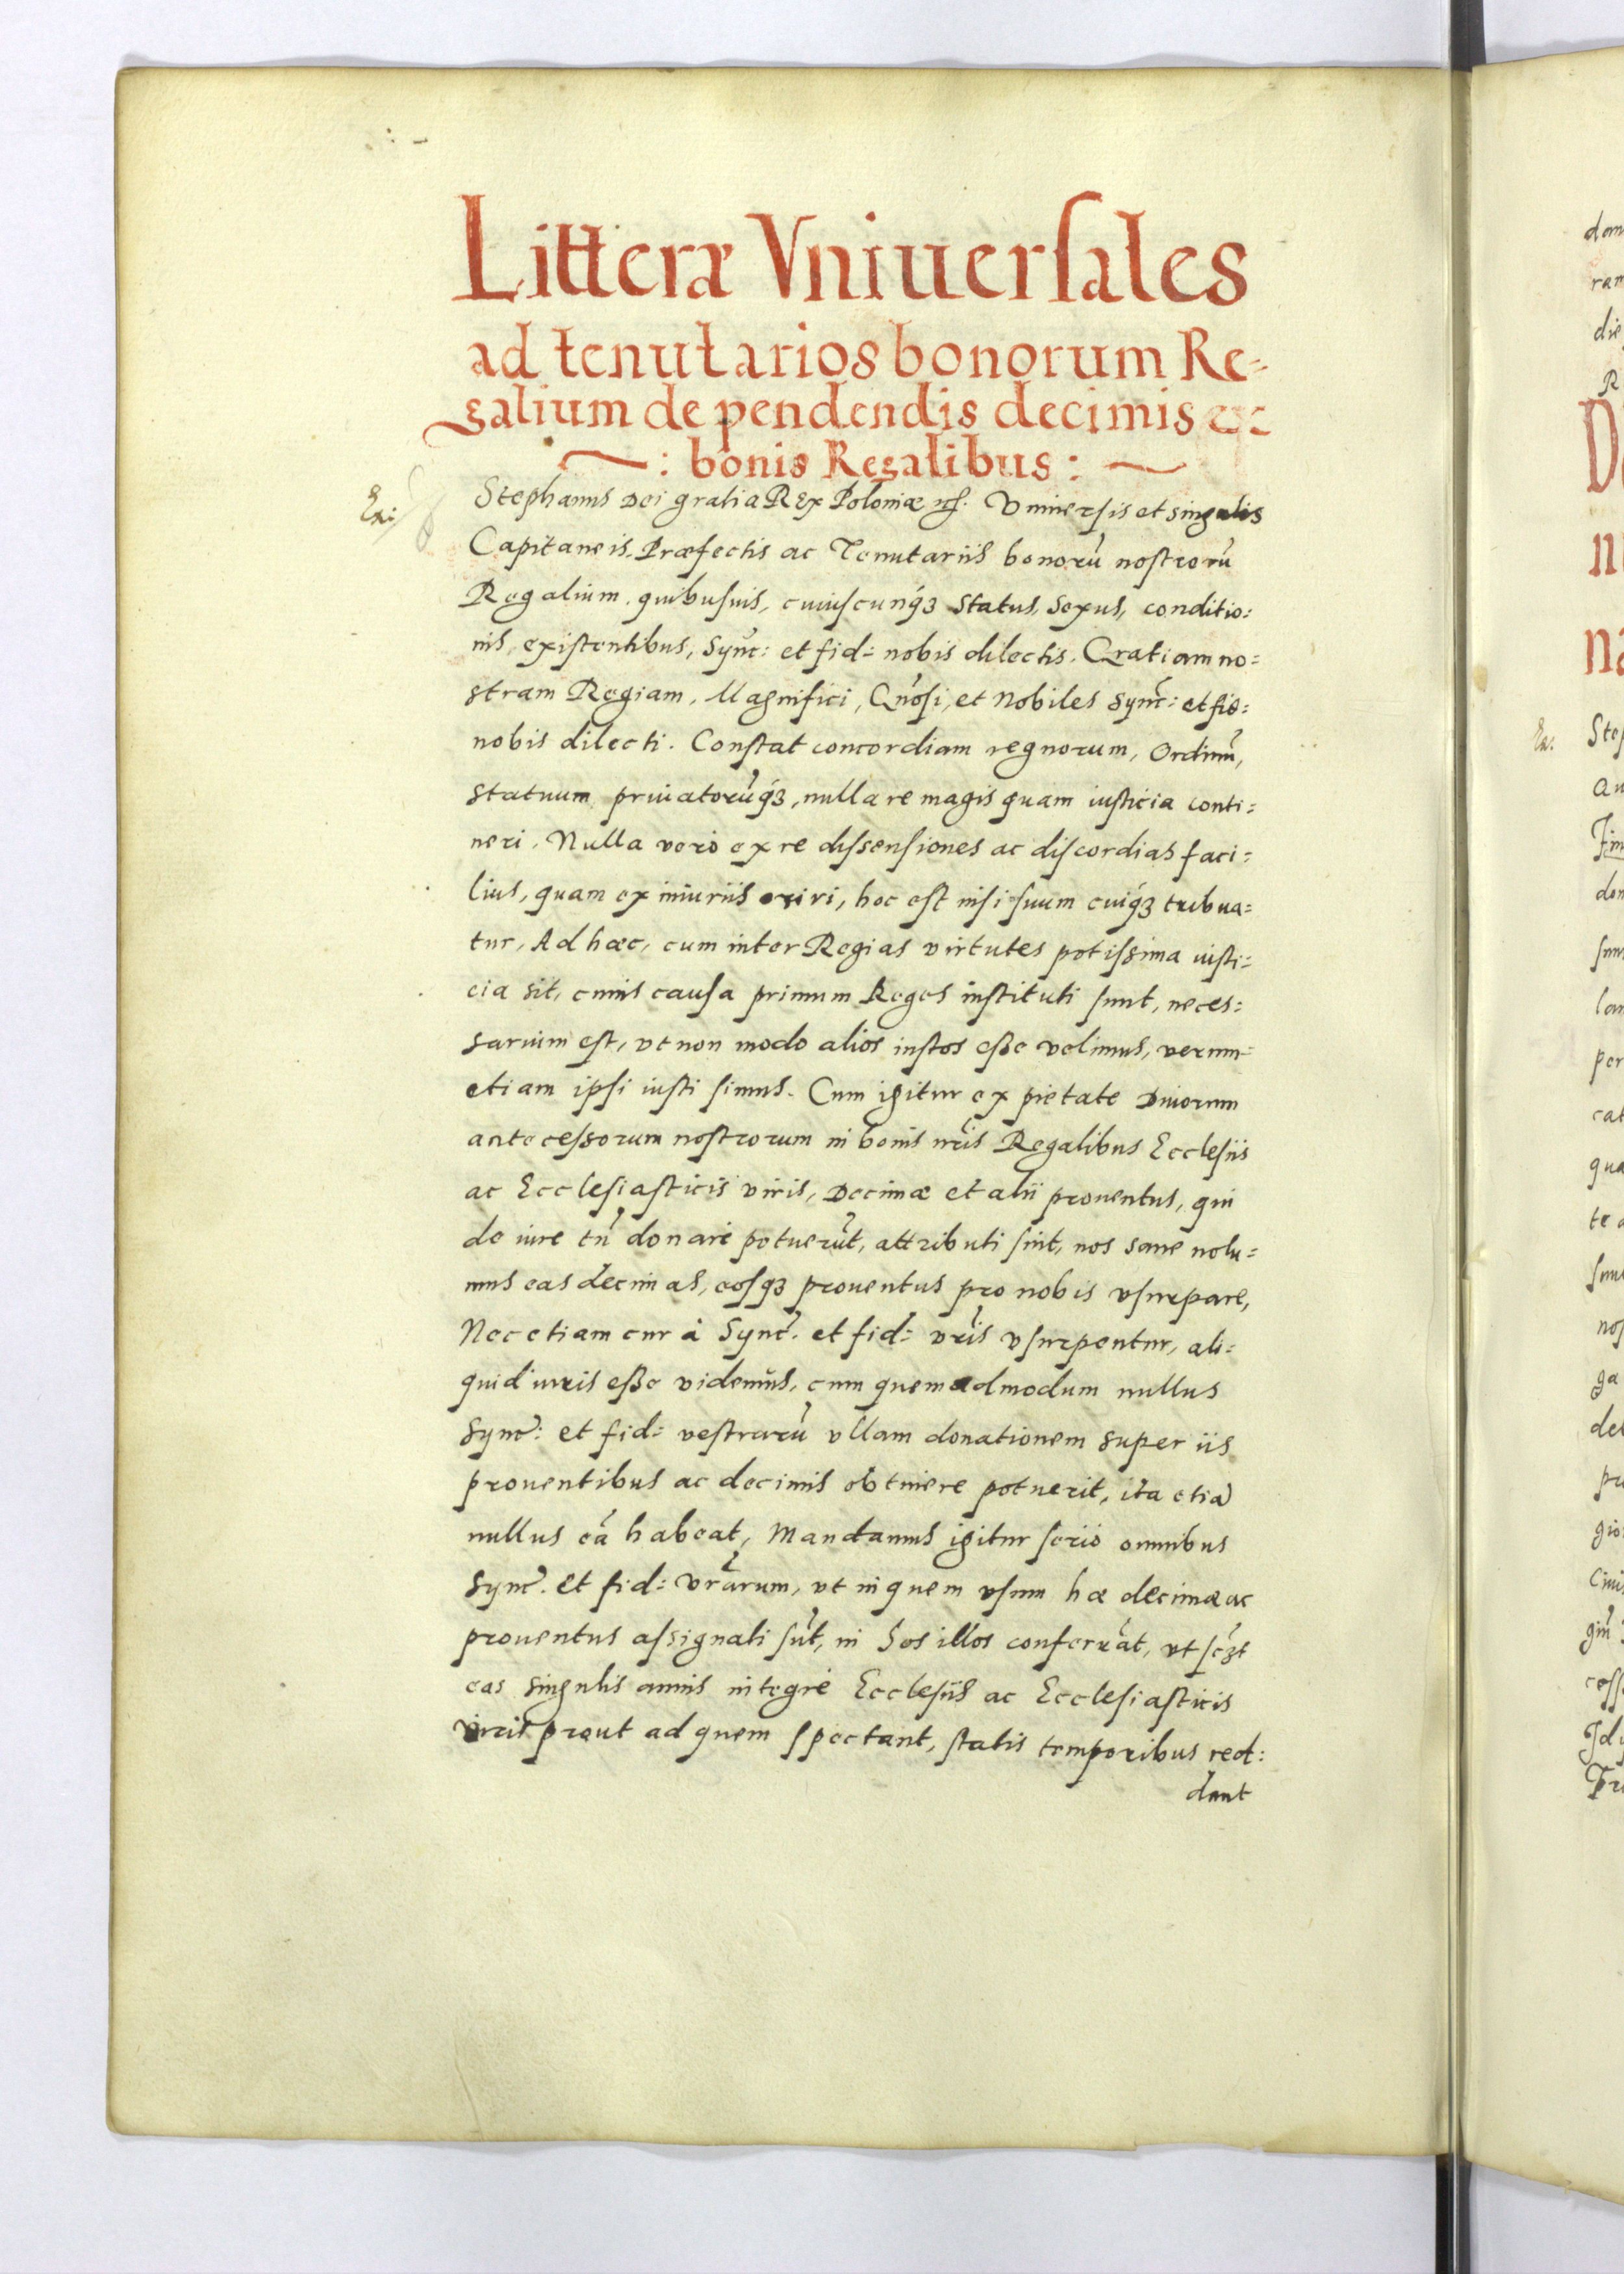 Litteræ Vniuersales
ad tenutarios bonorum Re-
galium de pendendis decimis ex
: bonis Regalibus :
Ex:
Stephanus Dei gratia REx Poloniæ Vniuersis et singulis
Capitaneis, Præfectis ac Tenutariis bonorũ nostrorũ
Regalium, quibusuis, cuiuscunqꝫ status, sexus, conditio:
nis, existentibus, Sync: et fid: nobis dilectis. Gratiam no=
stram Regiam. Magnifici, Gñosi, et Nobiles Sync: et fid:
nobis dilecti. Constat concordiam regnorum, Ordinũ,
statuum, priuatorũqꝫ, nulla re magis quam iusticia conti=
neri. Nulla vero ex re dissensiones ac discordias faci=
lius, quam ex iniuriis oriri, hoc est nisi suum cuiqꝫ tribua=
tur, Ad hæc, cum inter Regias virtutes potissima iusti=
cia sit, cuius causa primum Reges instituti sunt, neces=
sarium est, vt non modo alios iustos esse velimus, verum=
etiam ipsi iusti simus. Cum igitur ex pietate Diuorum
antecessorum nostrorum in bonis nr̃is Regalibus Ecclesiis
ac Ecclesiasticis viris, Decimæ et alii prouentus, qui
de iure tñ donari potuerũt, attributi sint, nos sane nolu=
mus eas decimas, eosqꝫ prouentus pro nobis vsurpare,
Nec etiam cur à Sync: et fid: vr̃is vsurpentur, ali=
quid iuris esse videmus, cum quemadmodum nullus
Sync: et fid: vestrarũ vllam donationem super iis
prouentibus ac decimis obtinere potuerit, ita etiã
nullus eã habeat, Mandamus igitur serio omnibus
Sync. et fid: vr̃arum, vt in quem vsum hæ decimæ ac
prouentus assignati sũt, in hos illos conferãt, vt scꝫt
eas singulis annis integre Ecclesiis ac Ecclesiasticis
viris prout ad quem spectant, statis temporibus red:
dant